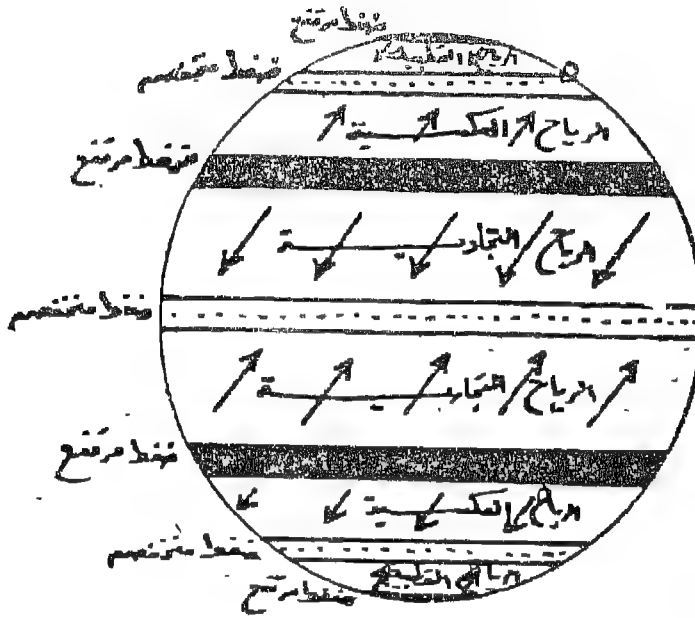 ضغط مرتفع
الرياح القطبية
ضغط منخفض
الرياح العكسية
ضغط مرتفع
الرياح التجارية
ضغط منخفض
الرياح التجارية
ضغط مرتفع
الرياح العكسية
ضغط منخفض
الرياح القطبية
ضغط مرتفع